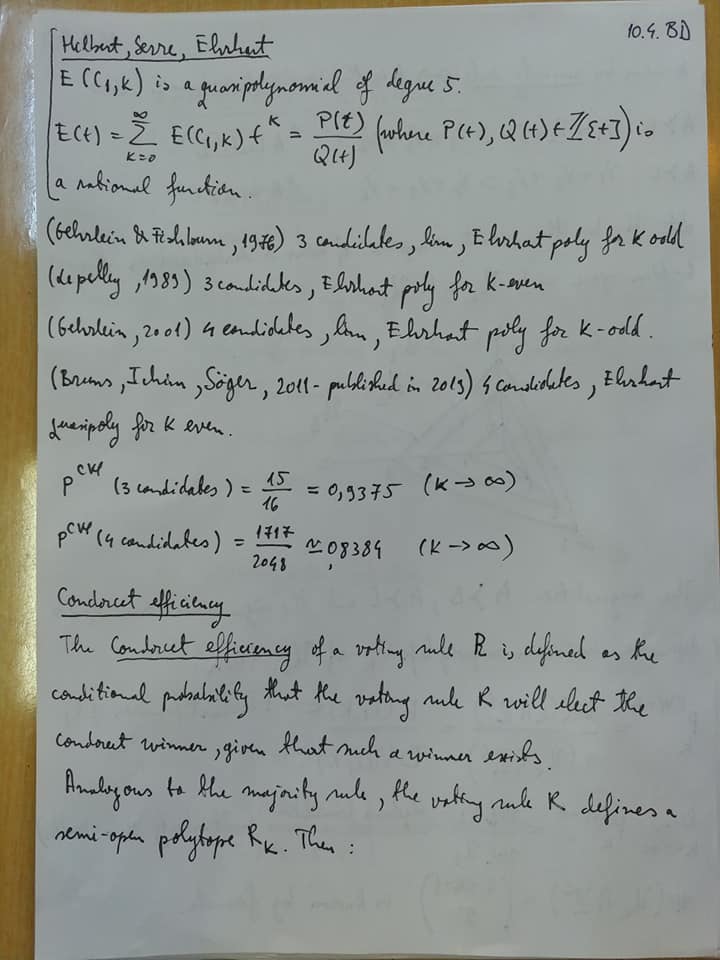 10.4. BD
Hilbert, Serre, Ehrhart
E(C₁,k) is a quasipolynomial of degree 5.
E(t) = ∑_{k=0}^{∞} E(C₁,k) t^k = P(t)/Q(t) (where P(t), Q(t) ∈ ℤ[t]) is
a rational function.
(Gehrlein & Fishburn, 1976) 3 candidates, lim, Ehrhat poly for K odd
(Lepelley, 1989) 3 candidates, Ehrhart poly for K-even
(Gehrlein, 2001) 4 candidates, lim, Ehrhart poly for K-odd.
(Bruns, Ichim, Söger, 2011- published in 2013) 4 candidates, Ehrhart
quasipoly for K even.
p^CW (3 candidates) = 15/16 = 0,9375 (K → ∞)
p^CW (4 candidates) = 1717/2048 ≃ 0,8384 (K → ∞)
Condorcet efficiency
The Condorcet efficiency of a voting rule R is defined as the
conditional probability that the voting rule R will elect the
condorcet winner, given that such a winner exists.
Analogous to the majority rule, the voting rule R defines a
semi-open polytope R_K. Then :